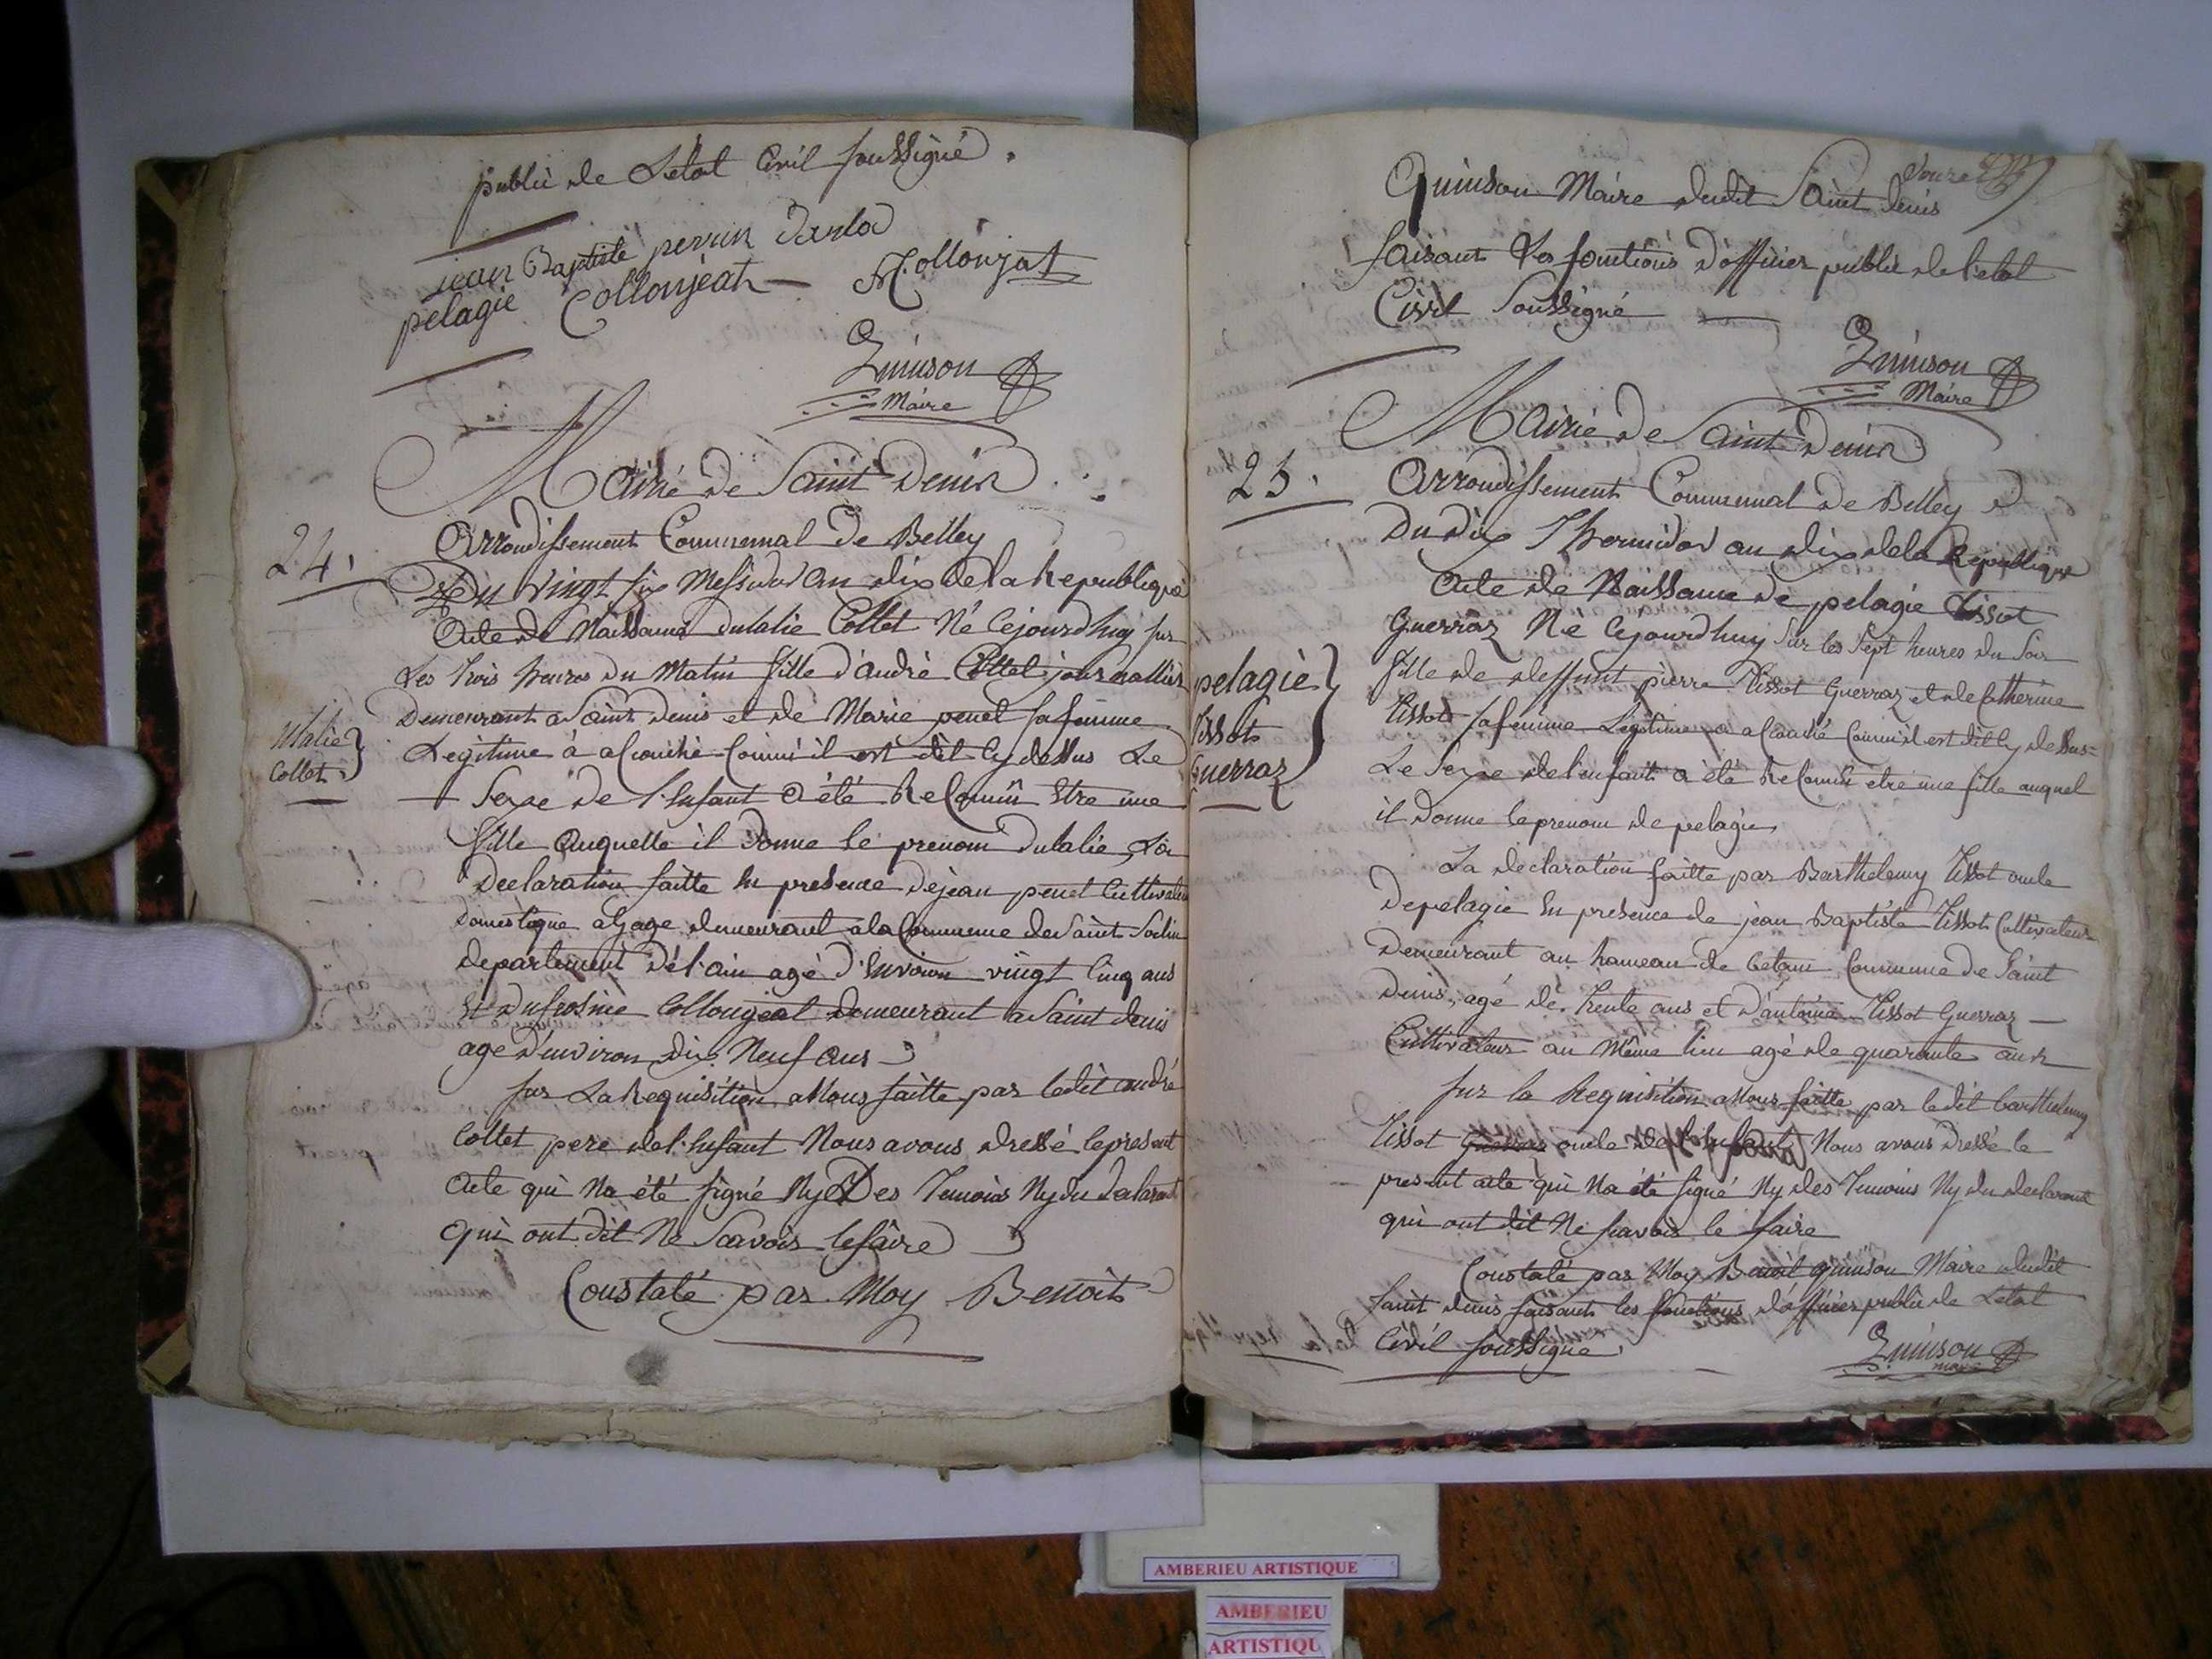 publié de Letat Civil soussigné.
jean Baptiste perrin Darlod
pelagie Collonjeat — M. Collonjat
Quinson
Maire
Mairie de Saint Denis
24.
Arrondissement Communal de Belley
Du vingt six Messidor an dix de la Republique
Acte de Naissance dulalie Collet Né Cejourdhuy sur
Les trois heures du Matin fille d'andré Collet journallier
Demeurant a Saint Denis et de Marie penel sa femme
ulalie
Collet
Legitime à acouchée Comm'il est dit Cy dessus Le
Sexe de l'Enfant a été Reconnû Etre une
fille auquelle il Donne le prenom dulalie, La
Declaration faitte En presence de jean penet Cultivateur
Domestique a Gage demeurant a la Commune de Saint Sorlin
departement del'ain agé d'Environ vingt Cinq ans
Et dufrosine Collongeat demeurant a Saint denis
age d'environ Dix Neuf ans
sur La Requisition a Nous faitte par ledit andré
Collet pere del'Enfant Nous avons dressé le present
Acte qui Na été signé Ny Des Temoins Ny du declarant
qui ont dit Ne Scavoir le faire
Constaté par Moy Benoit
Douze
Quinson Maire dudit Saint Denis
faisant Les fonctions d'officier publié de l'etat
Civil Soussigné
Quinson
Maire
Mairie de Saint Denis
25.
Arrondissement Communal de Belley
Du dix Thermidor an dix dela Republique
Acte de Naissance de pelagie Tissot
Guerraz Né Cejourdhuy Sur les Sept heures du Soir
pelagie
Tissot
Guerraz
fille de deffunt pierre Tissot Guerraz et de Catherine
Tissot sa femme Legitime a acouché Comm'il est dit Cy dessus=
Le Sexe del'enfant a été Reconnû etre une fille auquel
il Donne le prenom de pelagie
La declaration faitte par Barthelemy Tissot oncle
Depelagie En presence de jean Baptiste Tissot Cultivateur
Demeurant au hameau de betans Commune de Saint
Denis, agé de trente ans et d'antoine Tissot Guerraz —
Cultivateur au Même lieu agé de quarante ans
sur la Requisition a Nous faitte par ledit barthelemy
Tissot oncle de Nous avons Dressé le
present acte qui Na été signé Ny des Temoins Ny du declarant
qui ont dit Ne scavoir le faire
Constaté par Moy Benoit quinson Maire dudit
saint denis faisant les fonctions d'officier publié de Letat
Civil soussigné.
Quinson
maire
AMBERIEU ARTISTIQUE
AMBERIEU
ARTISTIQU